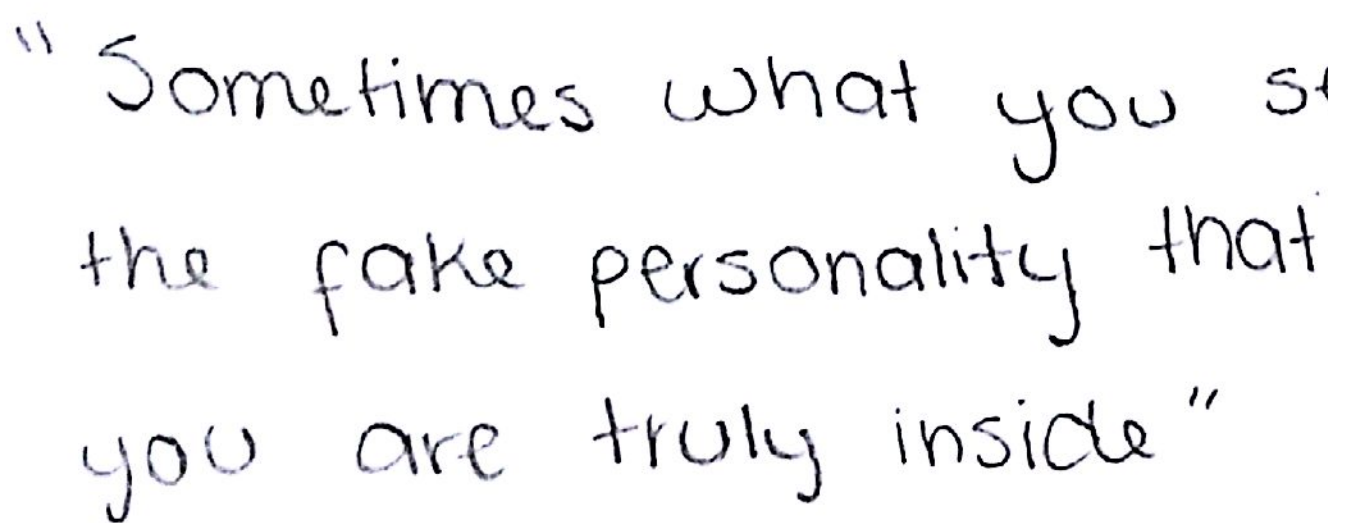 "Sometimes what you
the fake personality that
you are truly inside"